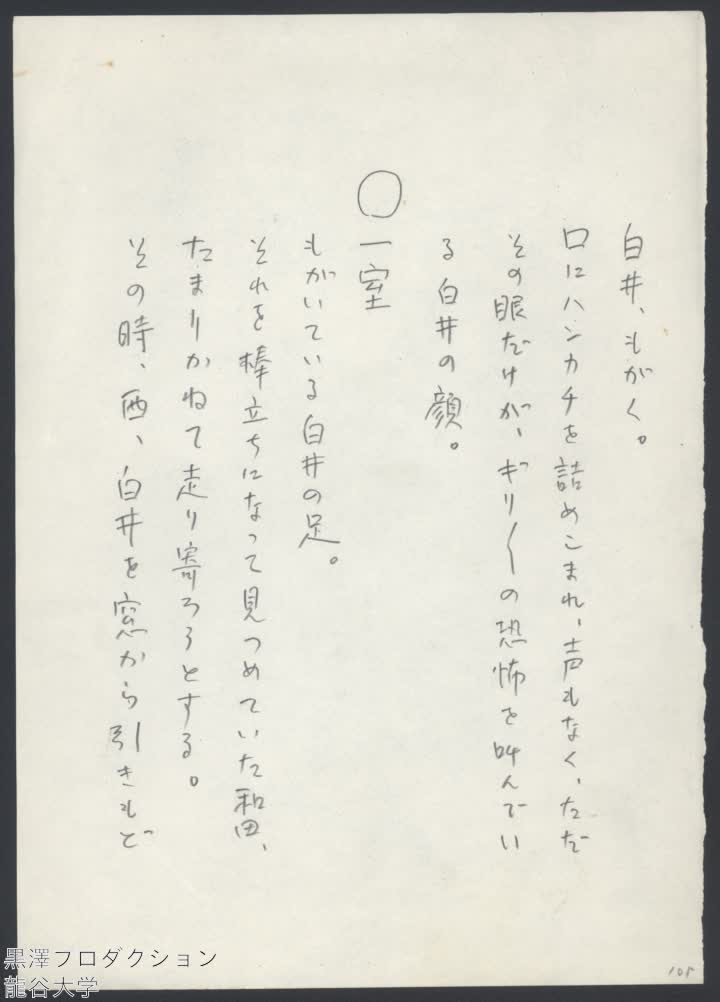 白井、もがく。
口にハンカチを詰めこまれ、声もなく、ただ
その眼だけが、ギリ〳〵の恐怖を叫んでい
る白井の顔。
〇一室
もがいている白井の足。
それを棒立ちになって見つめていた和田、
たまりかねて走り寄ろうとする。
その時、西、白井を窓から引きもど
105
黒澤プロダクション
龍谷大学